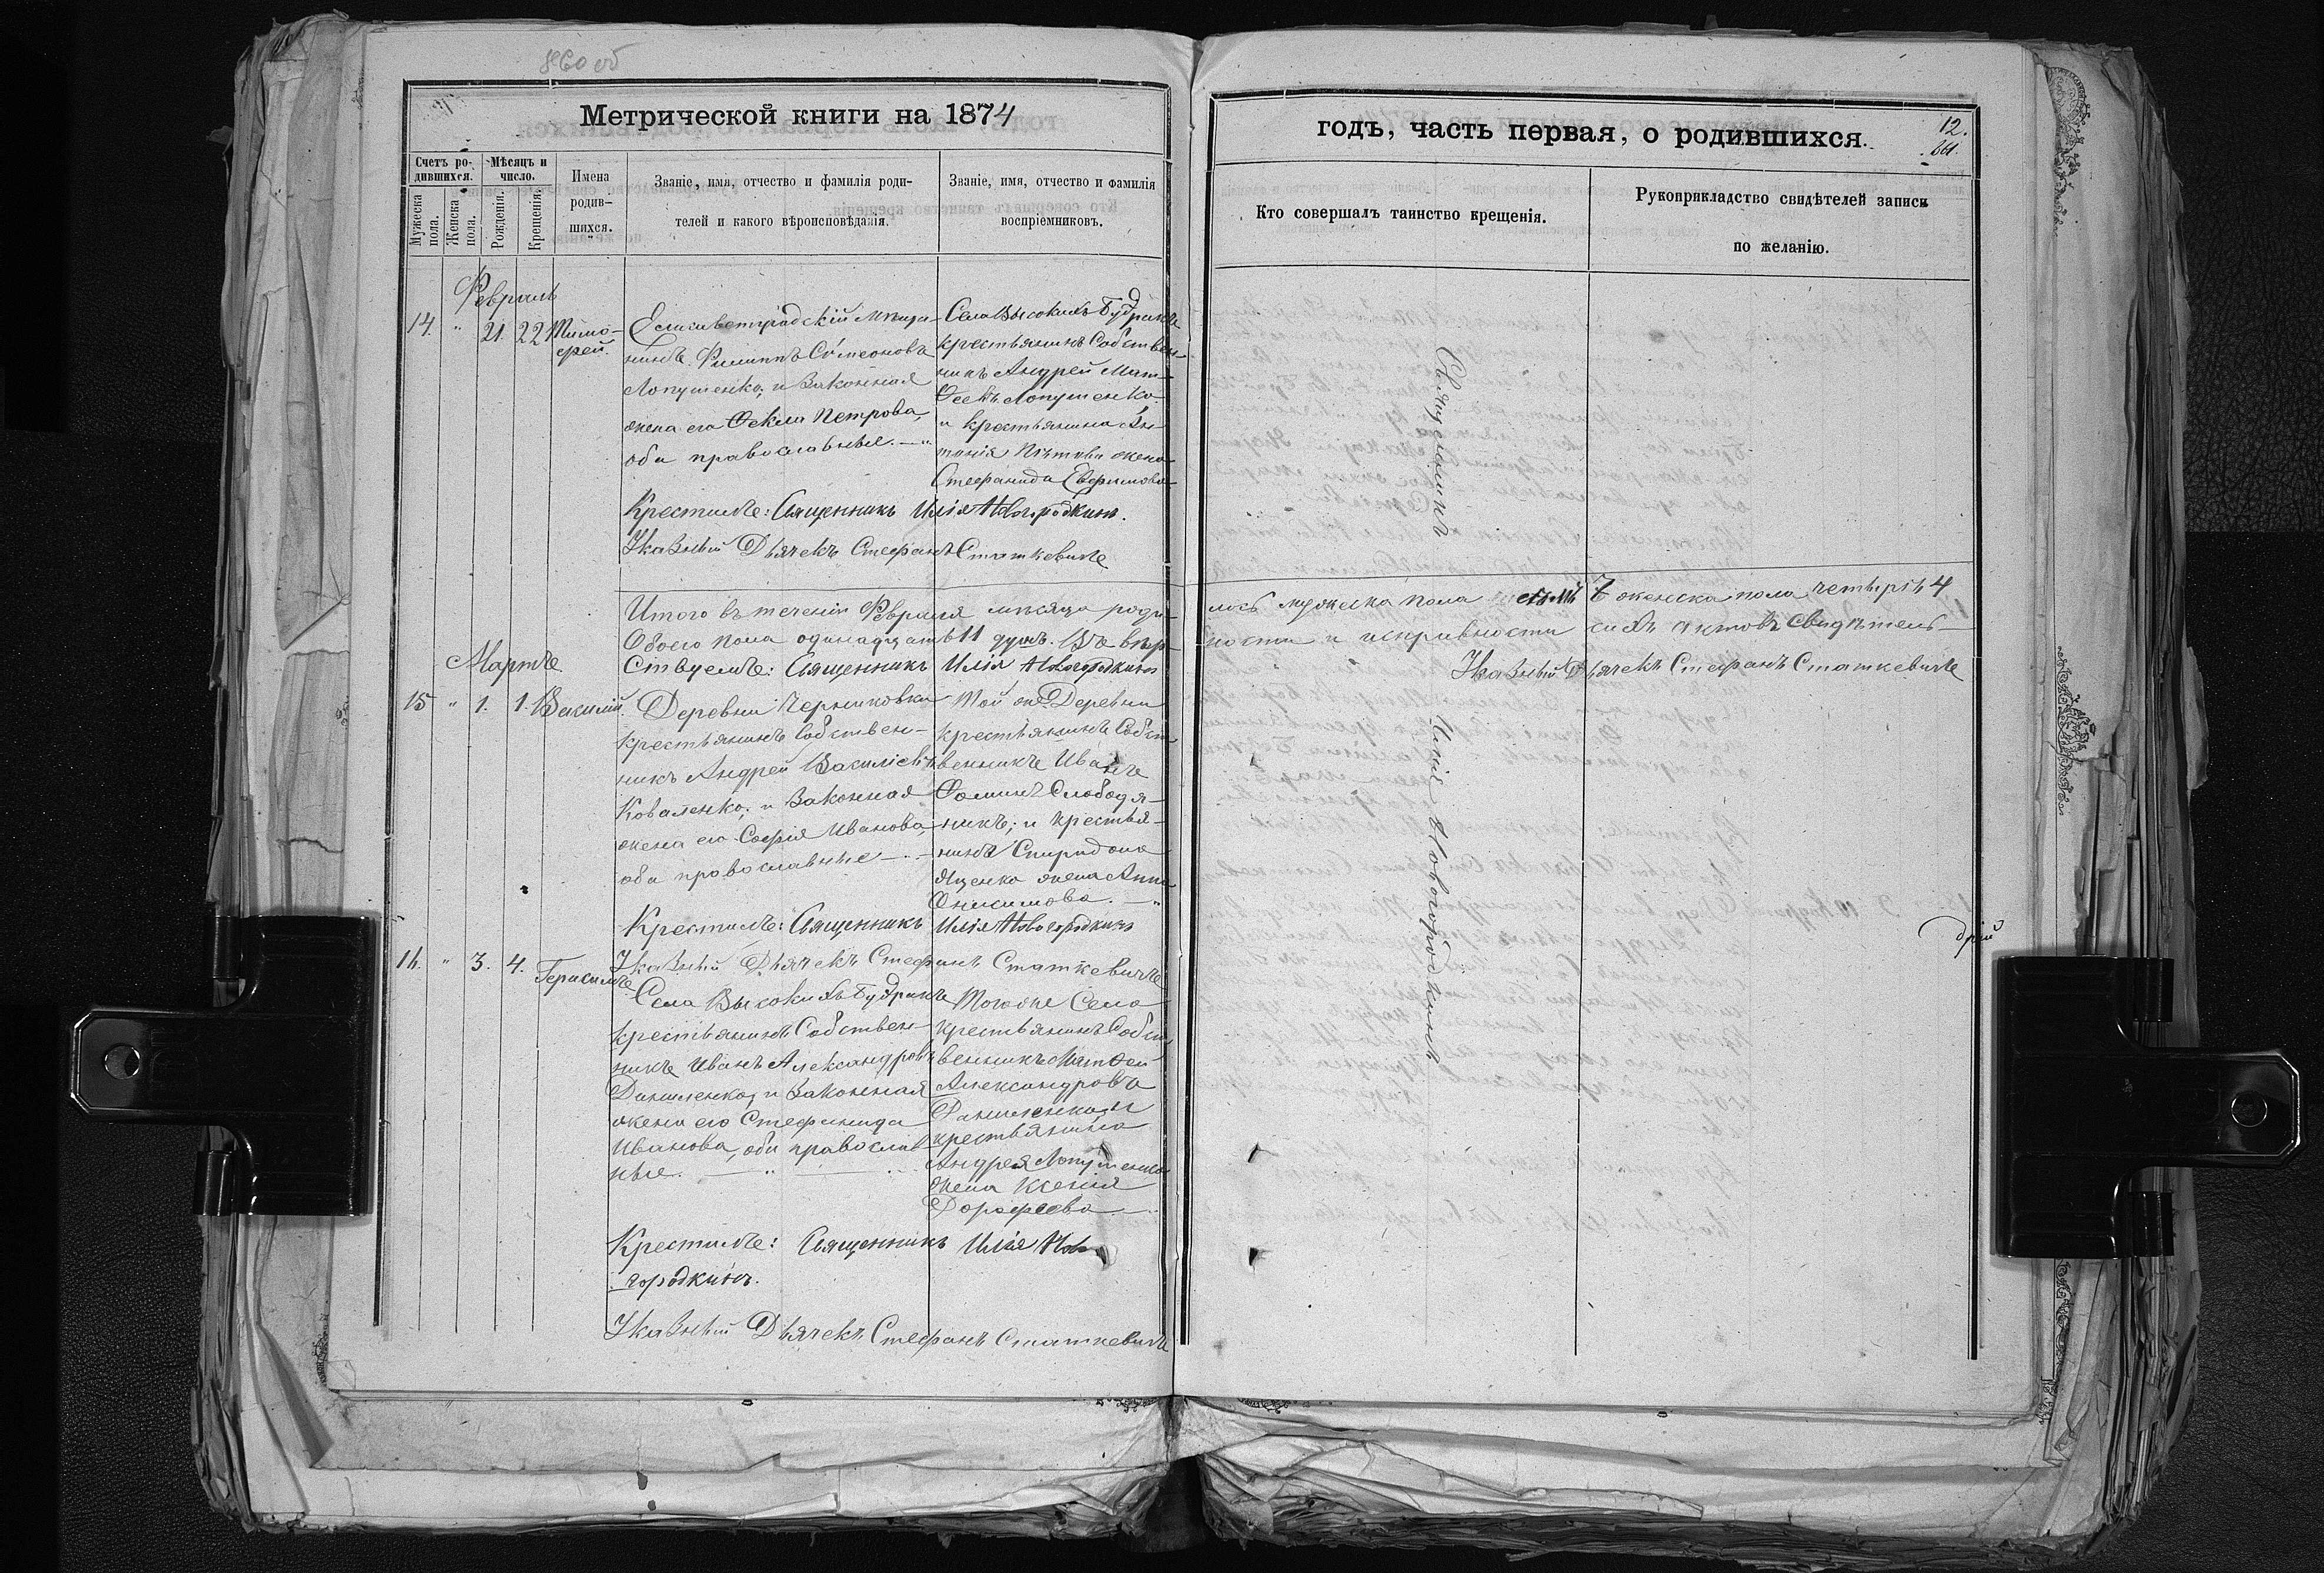 860 об
Метрической книги на 1874
Счетъ ро-
дившихся.
Мужеска пола.
Женска пола.
Мѣсяцъ и
число.
Рожденія.
Крещенія.
Имена
родив-
шихся.
Званіе, имя, отчество и фамилія роди-
телей и какого вѣроисповѣданія.
Званіе, имя, отчество и фамилія
воспріемниковъ.
Февраль
14 " 21. 22 Тимо-
фей.
Елисаветградскій мѣща-
нинъ Филиппъ Сѵмеоновъ
Лопушенко, и законная
жена его Ѳекла Петрова,
оба православные.
Села Высокихъ Будрикъ
крестьянинъ Собствен-
никъ Андрей Мат-
ѳеевъ Лопушенко
и крестьянина Ан-
тонія жена
Стефанида Евфимова
Крестилъ: Священникъ Илія Новогородкинъ.
Указный Дьячекъ Стефанъ Статкевичъ
Итого въ теченіи Февраля мѣсяца роди-
Обоего пола одинадцать 11 душъ. Въ вѣр-
ствуемъ: Священникъ Илія Новогородкинъ
Мартъ
15 " 1. 1. Василій.
Деревни Черниковки
крестьянинъ Собствен-
никъ Андрей Василіевъ
Коваленко, и законная
жена его Софія Иванова,
оба православные
Той же Деревни
крестьянинъ Собст-
венникъ Иванъ
Ѳоминъ Слободя-
никъ; и крестья-
нина Спиридона
Яценко жена Анна
Онисимова.
Крестилъ: Священникъ Илія Новогородкинъ
Указный Дьячекъ Стефанъ Статкевичъ
16. " 3. 4. Герасимъ
Села Высокихъ Будрикъ
крестьянинъ Собствен-
никъ Иванъ Александровъ
Даниленко, и законная
жена его Стефанида
Иванова, оба православ-
ные.
Тогоже Села
крестьянинъ Собст-
венникъ Матѳей
Александровъ
Даниленко, и
крестьянина
Андрея Лопушенка
жена Ксенія
Дорофеева
Крестилъ: Священникъ Илія Ново-
городкинъ.
Указный Дьячекъ Стефанъ Статкевичъ
годъ, часть первая, о родившихся.
12.
861.
Кто совершалъ таинство крещенія.
Рукоприкладство свидѣтелей записи
по желанію.
лось мужеска пола семь 7 женска пола четыре 4
ности и исправности сихъ актовъ свидѣтель-
Указный Дьячекъ Стефанъ Статкевичъ
Священникъ
Илія Новогородкинъ
дрій